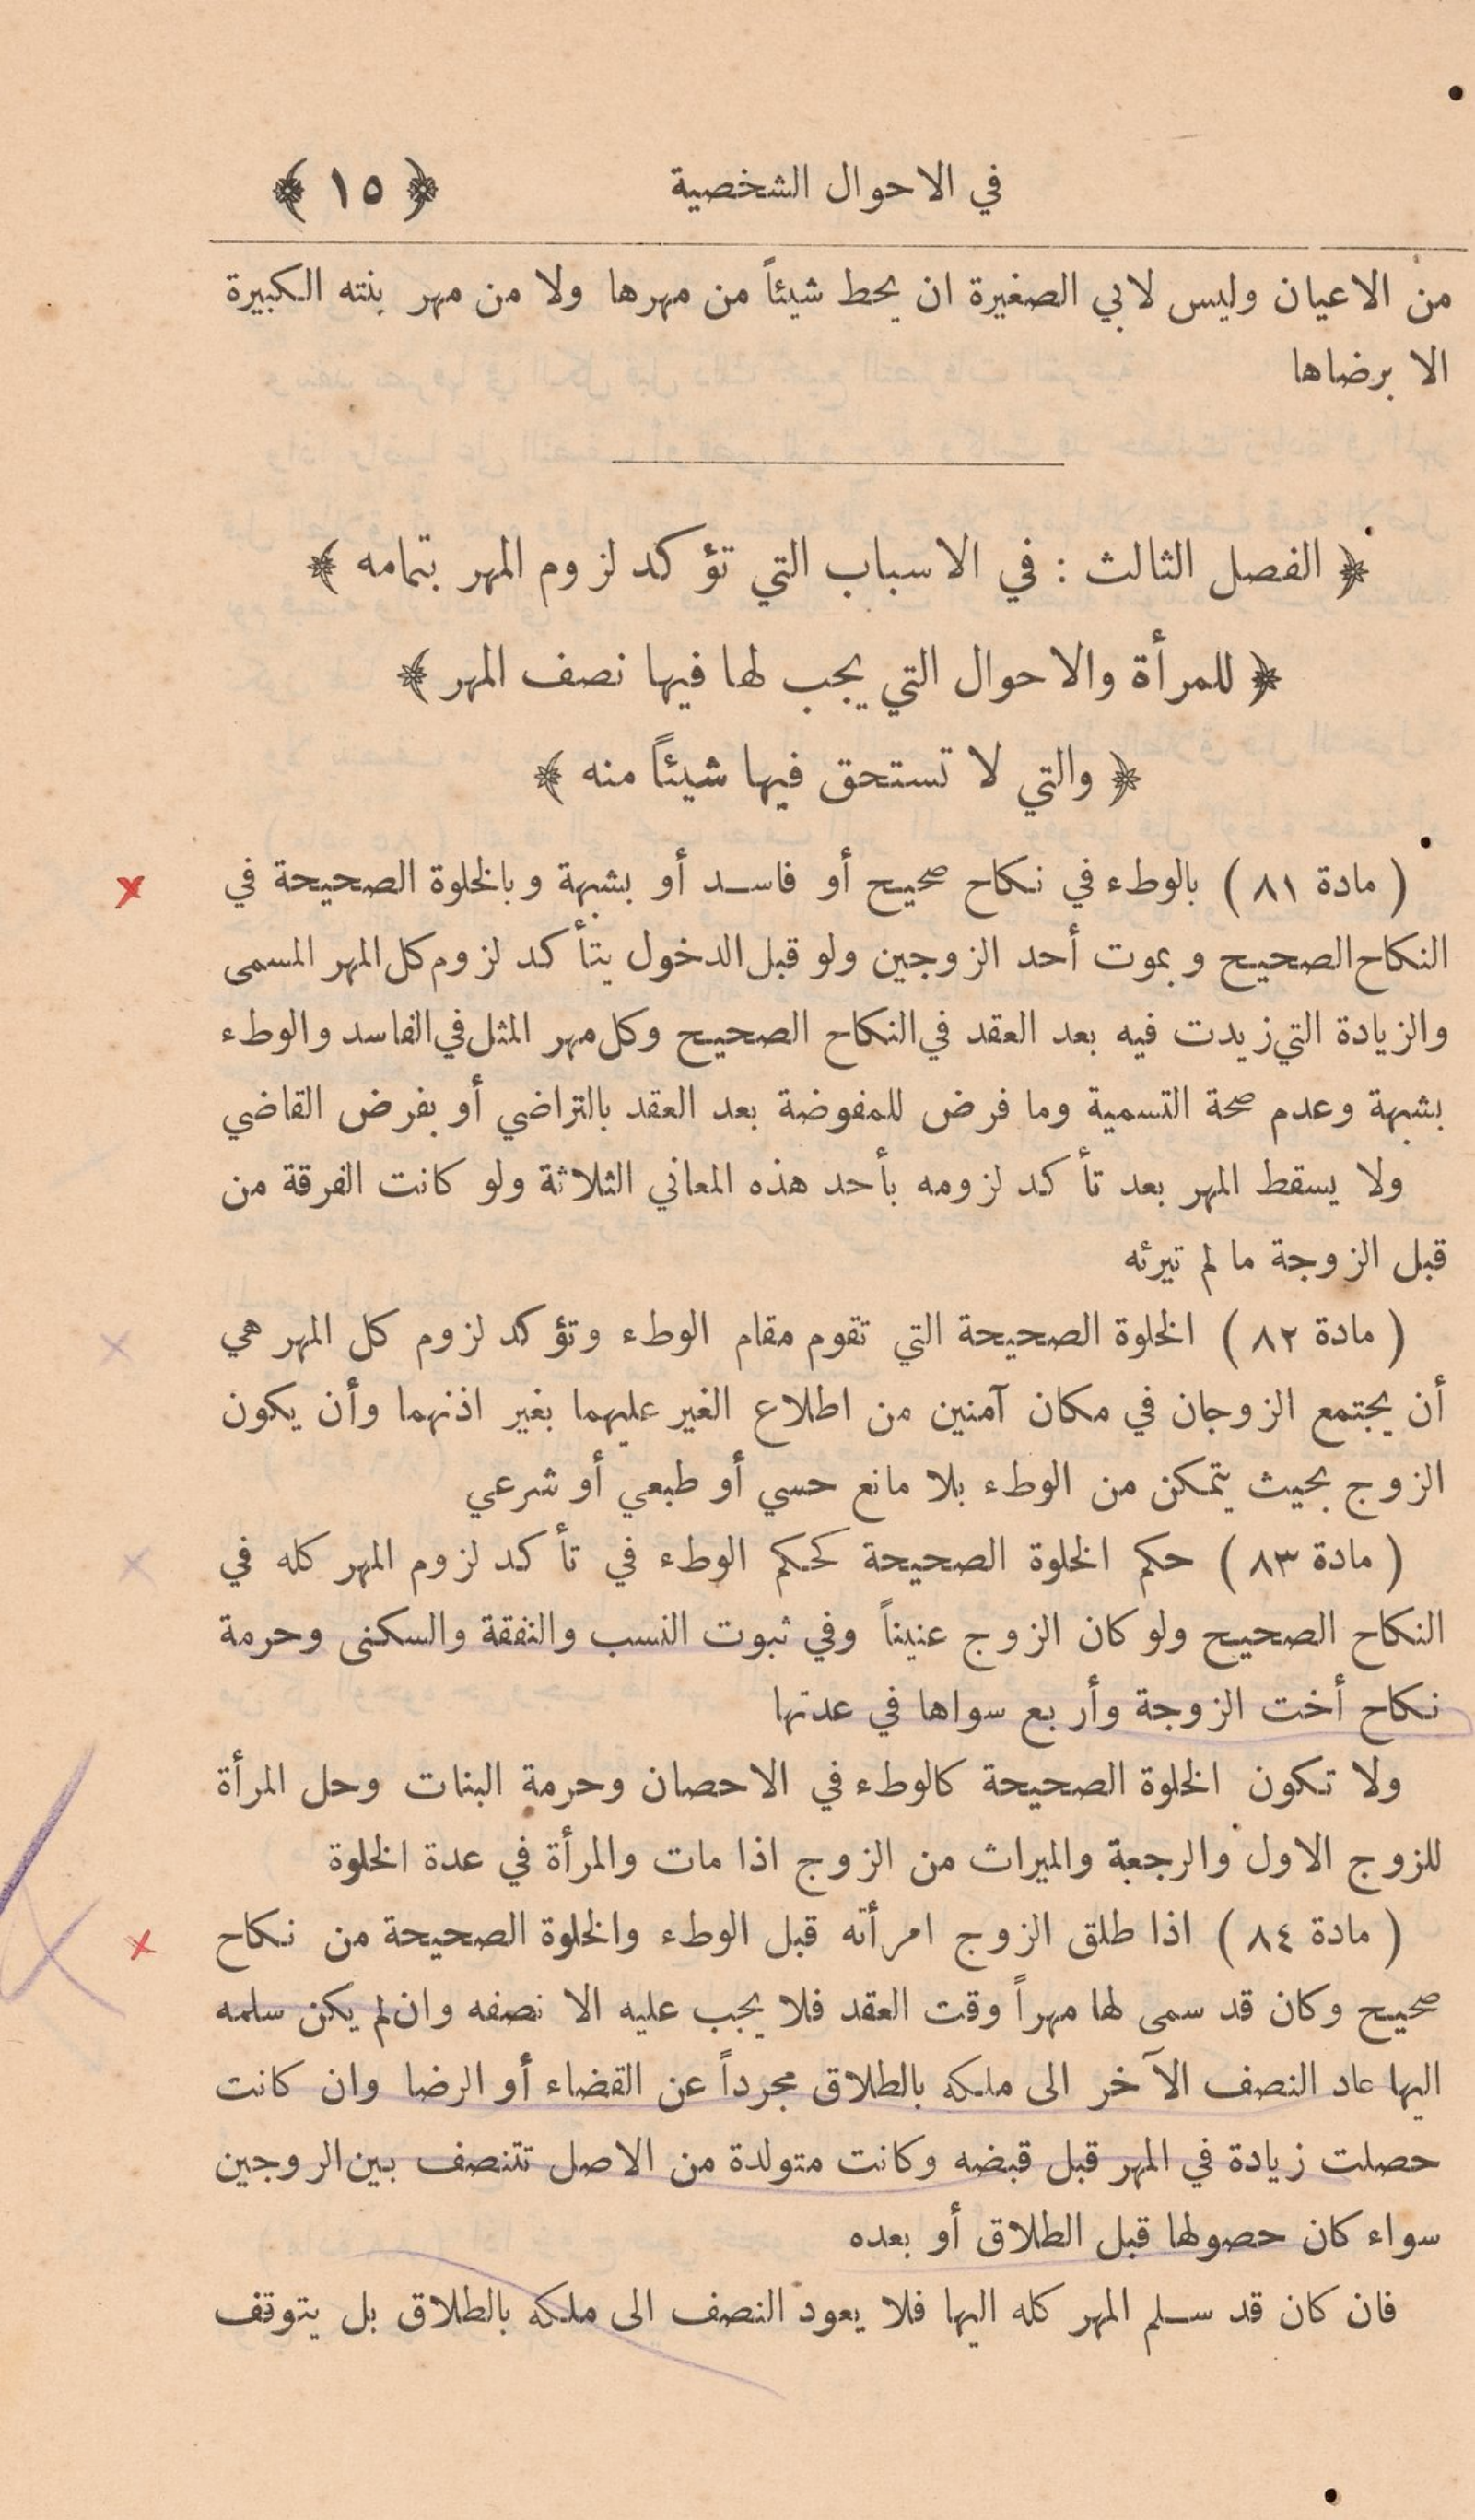 في الاحوال الشخصية ﴿ ١٥ ﴾
من الاعيان وليس لابي الصغيرة ان يحط شيئاً من مهرها ولا من مهر بنته الكبيرة
الا برضاها
﴿ الفصل الثالث : في الاسباب التي تؤكد لزوم المهر بتمامه ﴾
﴿ للمرأة والاحوال التي يجب لها فيها نصف المهر ﴾
﴿ والتي لا تستحق فيها شيئاً منه ﴾
( مادة ٨١ ) بالوطء في نكاح صحيح أو فاسد أو بشبهة وبالخلوة الصحيحة في
النكاح الصحيح وبموت أحد الزوجين ولو قبل الدخول يتأكد لزوم كل المهر المسمى
والزيادة التي زيدت فيه بعد العقد في النكاح الصحيح وكل مهر المثل في الفاسد والوطء
بشبهة وعدم صحة التسمية وما فرض للمفوضة بعد العقد بالتراضي أو بفرض القاضي
ولا يسقط المهر بعد تأكد لزومه بأحد هذه المعاني الثلاثة ولو كانت الفرقة من
قبل الزوجة ما لم تبرئه
( مادة ٨٢ ) الخلوة الصحيحة التي تقوم مقام الوطء وتؤكد لزوم كل المهر هي
أن يجتمع الزوجان في مكان آمنين من اطلاع الغير عليهما بغير اذنهما وأن يكون
الزوج بحيث يتمكن من الوطء بلا مانع حسي أو طبعي أو شرعي
( مادة ٨٣ ) حكم الخلوة الصحيحة كحكم الوطء في تأكد لزوم المهر كله في
النكاح الصحيح ولو كان الزوج عنيناً وفي ثبوت النسب والنفقة والسكنى وحرمة
نكاح أخت الزوجة وأربع سواها في عدتها
ولا تكون الخلوة الصحيحة كالوطء في الاحصان وحرمة البنات وحل المرأة
للزوج الاول والرجعة والميراث من الزوج اذا مات والمرأة في عدة الخلوة
( مادة ٨٤ ) اذا طلق الزوج امرأته قبل الوطء والخلوة الصحيحة من نكاح
صحيح وكان قد سمى لها مهراً وقت العقد فلا يجب عليه الا نصفه وان لم يكن سلمه
اليها عاد النصف الآخر الى ملكه بالطلاق مجرداً عن القضاء أو الرضا وان كانت
حصلت زيادة في المهر قبل قبضه وكانت متولدة من الاصل تتنصف بين الروجين
سواء كان حصولها قبل الطلاق أو بعده
فان كان قد سلم المهر كله اليها فلا يعود النصف الى ملكه بالطلاق بل يتوقف